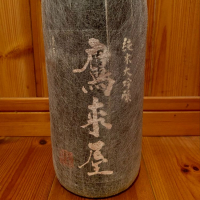 純米大吟醸
鷹来屋